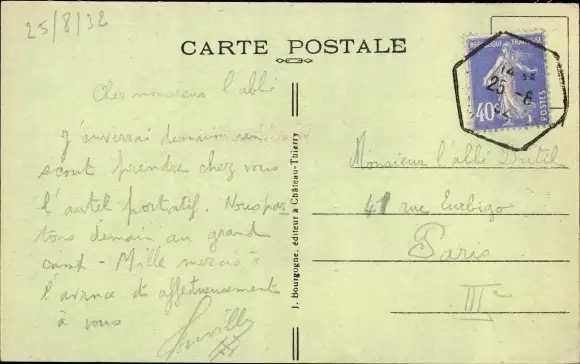 25/8/32
CARTE POSTALE
REPUBLIQUE FRANÇAISE
40c
POSTES
25 -8
Cher monsieur l'abbé
J'enverrai demain un
scout prendre chez vous
l'autel portatif. Nous par
tons demain au grand
camp - Mille mercis à
l'avance et affectueusement
à vous
J. Bourgogne, éditeur à Château-Thierry
Monsieur l'abbé
41 rue Turbigo
Paris
III e